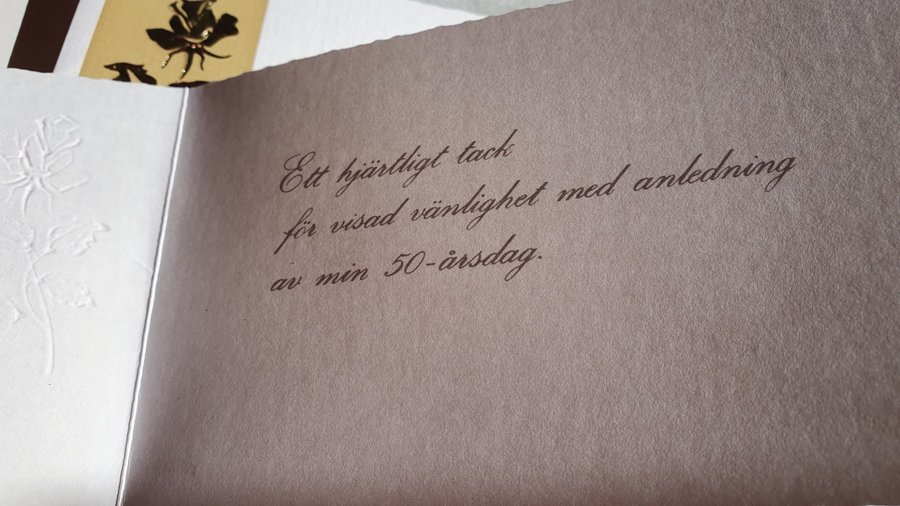 Ett hjärtligt tack
för visad vänlighet med anledning
av min 50-årsdag.